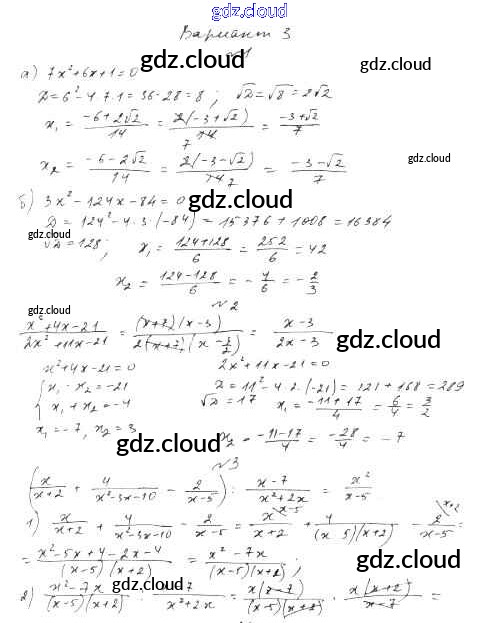 gdz.cloud
Вариант 3
gdz.cloud
№1
а) 7x²+6x+1=0
D=6²-4·7·1=36-28=8; √D=√8=2√2
x₁ = (-6+2√2)/14 = 2(-3+√2)/14 7 = (-3+√2)/7
gdz.cloud
x₂ = (-6-2√2)/14 = 2(-3-√2)/14 7 = (-3-√2)/7
gdz.cloud
б) 3x²-124x-84=0
gdz.cloud
D=124²-4·3·(-84)=15376+1008=16384
gdz.cloud
√D=128; x₁ = (124+128)/6 = 252/6 = 42
x₂ = (124-128)/6 = -4/6 = -2/3
№2
gdz.cloud
(x²+4x-21)/(2x²+11x-21) = (x+7)(x-3)/2(x+7)(x-3/2) = (x-3)/(2x-3)
gdz.cloud
x²+4x-21=0 2x²+11x-21=0
{x₁·x₂=-21 D=11²-4·2·(-21)=121+168=289
x₁+x₂=-4 √D=17 x₁ = (-11+17)/4 = 6/4 = 3/2
x₁=-7, x₂=3
gdz.cloud
x₂ = (-11-17)/4 = -28/4 = -7
№3
(x/(x+2) + 4/(x²-3x-10) - 2/(x-5)) : (x-7)/(x²+2x) = x²/(x-5)
1) x/(x+2) + 4/(x²-3x-10) - 2/(x-5) = x/(x+2) \x-5 + 4/(x-5)(x+2) - 2/(x-5) \x+2 =
= (x²-5x+4-2x-4)/(x-5)(x+2) = (x²-7x)/(x-5)(x+2);
gdz.cloud
gdz.cloud
2) (x²-7x)/(x-5)(x+2) : 7/(x²+2x) = x(x-7)/(x-5)(x+2) · x(x+2)/(x-7) =